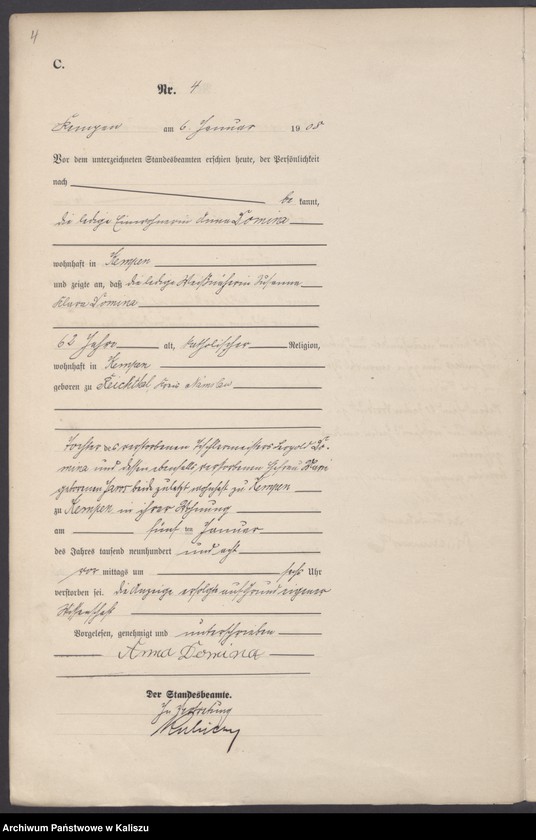 4
C.
Nr. 4
Kempen am 6. Januar 1908
Vor dem unterzeichneten Standesbeamten erschien heute, der Persönlichkeit
nach
be kannt,
die ledige Einwohnerin Anna Domina
wohnhaft in Kempen
und zeigte an, daß die ledige Weißnäherin Susanna
Klara Domina
63 Jahre alt, katholischer Religion,
wohnhaft in Kempen
geboren zu Reichthal, Kreis Namslau
Tochter des verstorbenen Tischlermeisters Leopold Do-
mina und dessen ebenfalls verstorbenen Ehefrau
geborenen beide zuletzt wohnhaft zu Kempen
zu Kempen in ihrer Wohnung
am fünften Januar
des Jahres tausend neunhundert und acht
vor mittags um sechs Uhr
verstorben sei. Die Anzeige erfolgte auf Grund eigener
Wissenschaft
Vorgelesen, genehmigt und unterschrieben
Anna Domina
Der Standesbeamte.
In Vertretung
Archiwum Państwowe w Kaliszu